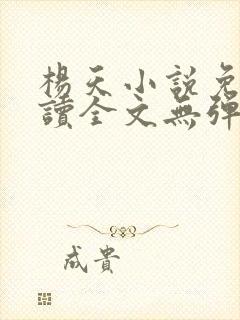 楊天小說免
讀全文無彈
成貴